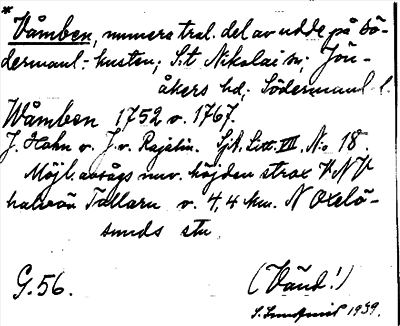 * Våmben, numera tral. del av udde på Sö-
dermanl.-kusten; S:t Nikolai sn; Jön-
åkers hd; Södermanl. l.
Wåmben 1752 v. 1767.
J. Hahn v. J. v. Rajalin. Sjk. Litt. VII. No 18.
Möjl. avsågs nuv. höjden strax V. NV
halvön Tallarn v. 4,4 km. N Oxelö-
sunds stn
G. 56. (Vänd!)
1939.